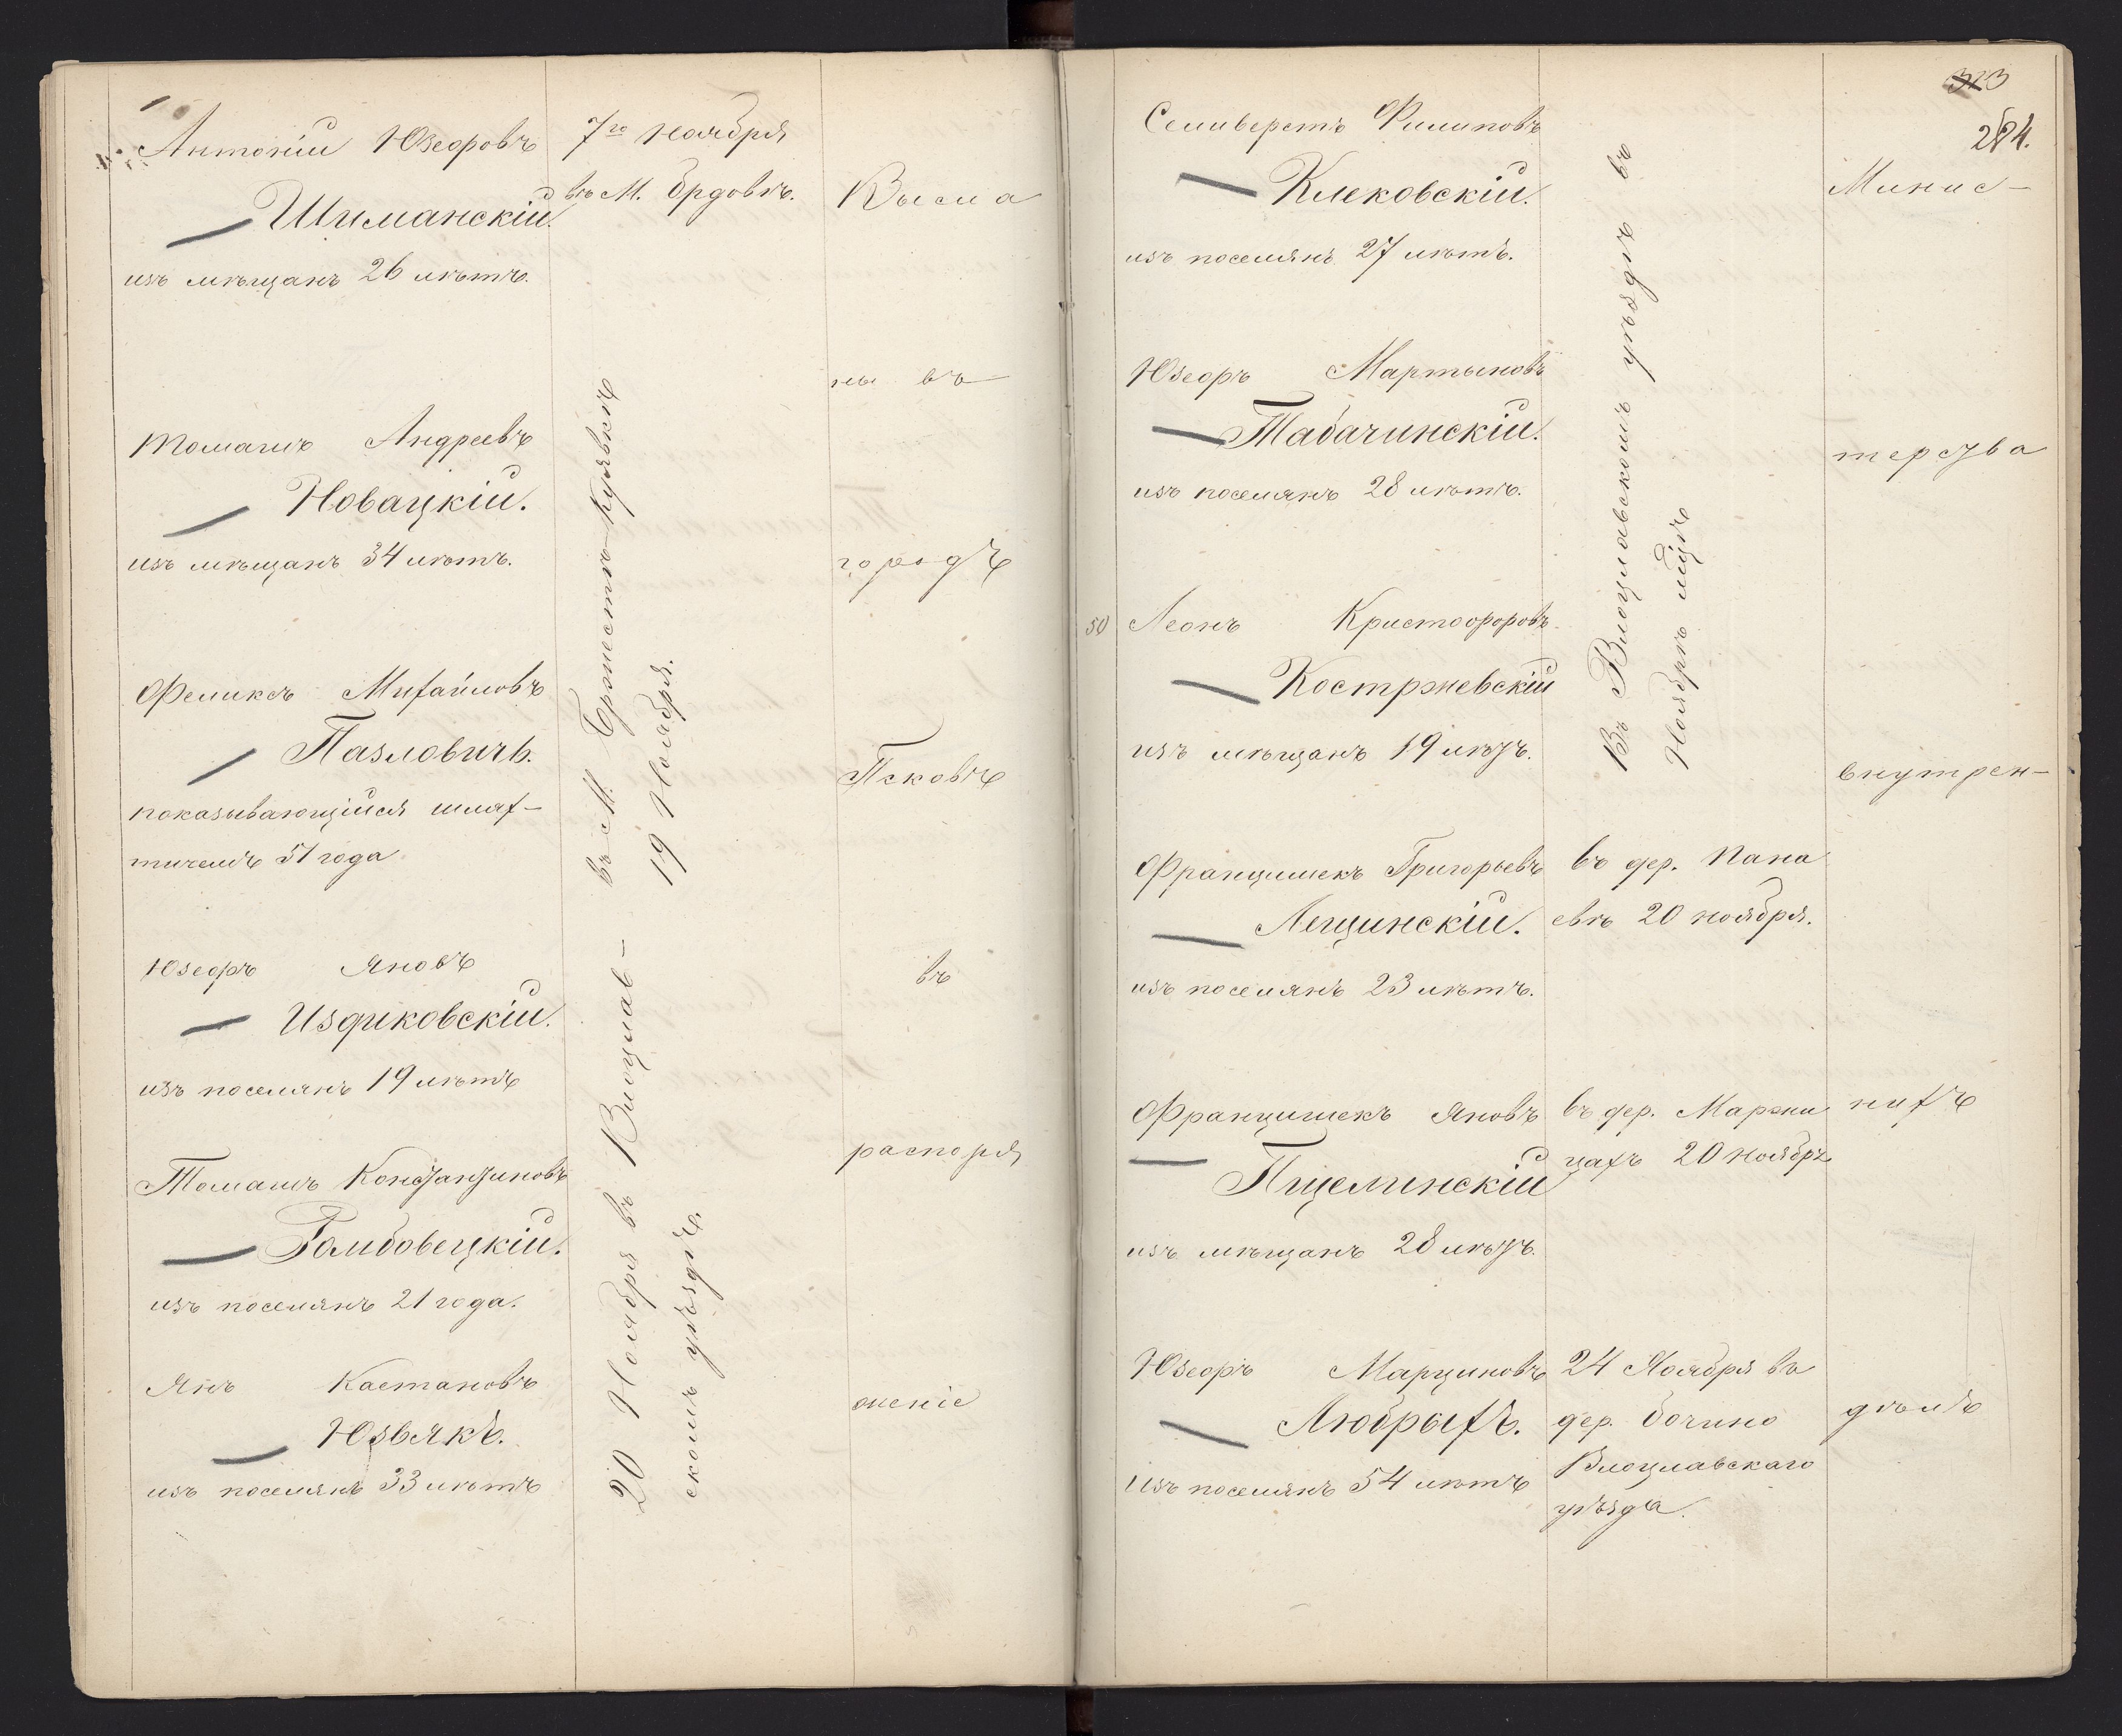 Антоній Юзефовъ
Шиманскій.
изъ мѣщанъ 26 лѣтъ.
Томашъ Андреевъ
Новацкій.
изъ мѣщанъ 34 лѣтъ.
Феликсъ Михайловъ
Пазловичъ.
показывающійся шлях-
тичемъ 51 года
Юзефъ Яновъ
Издиковскій.
изъ поселянъ 19 лѣтъ
Томашъ Константиновъ
Гомбовецкій.
изъ поселянъ 21 года.
Янъ Каетановъ
Юзьякъ.
изъ поселянъ 33 лѣтъ
7го ноября
въ М. Брдовѣ.
въ М. Бржестѣ-Куявскѣ
19 Ноября.
20 Ноября въ Влоцлав-
скомъ уѣздѣ.
Высла
ны въ
городъ
Псковъ
въ
распоря
женіе
323
284.
Селиверстъ Филиповъ
Клековскій.
изъ поселянъ 27 лѣтъ.
Юзефъ Мартыновъ
Табачинскій.
изъ поселянъ 28 лѣтъ.
50
Леонъ Кристофоровъ
Костржевскій
изъ мѣщанъ 19 лѣтъ.
Францишекъ Григорьевъ
Лещинскій.
изъ поселянъ 23 лѣтъ.
Францишекъ Яновъ
Пщелинскій
изъ мѣщанъ 28 лѣтъ.
Юзефъ Марциновъ
Любрыхъ.
изъ поселянъ 54 лѣтъ
Въ Влоцлавскомъ уѣздѣ въ
Ноябрѣ мцѣ
въ дер. Папа
евѣ 20 ноября.
въ дер. Маржи
цахъ 20 ноябрѣ
24 Ноября въ
дер. Бочино
Влоцлавскаго
уѣзда.
Минис-
терства
внутрен-
нихъ
дѣлъ